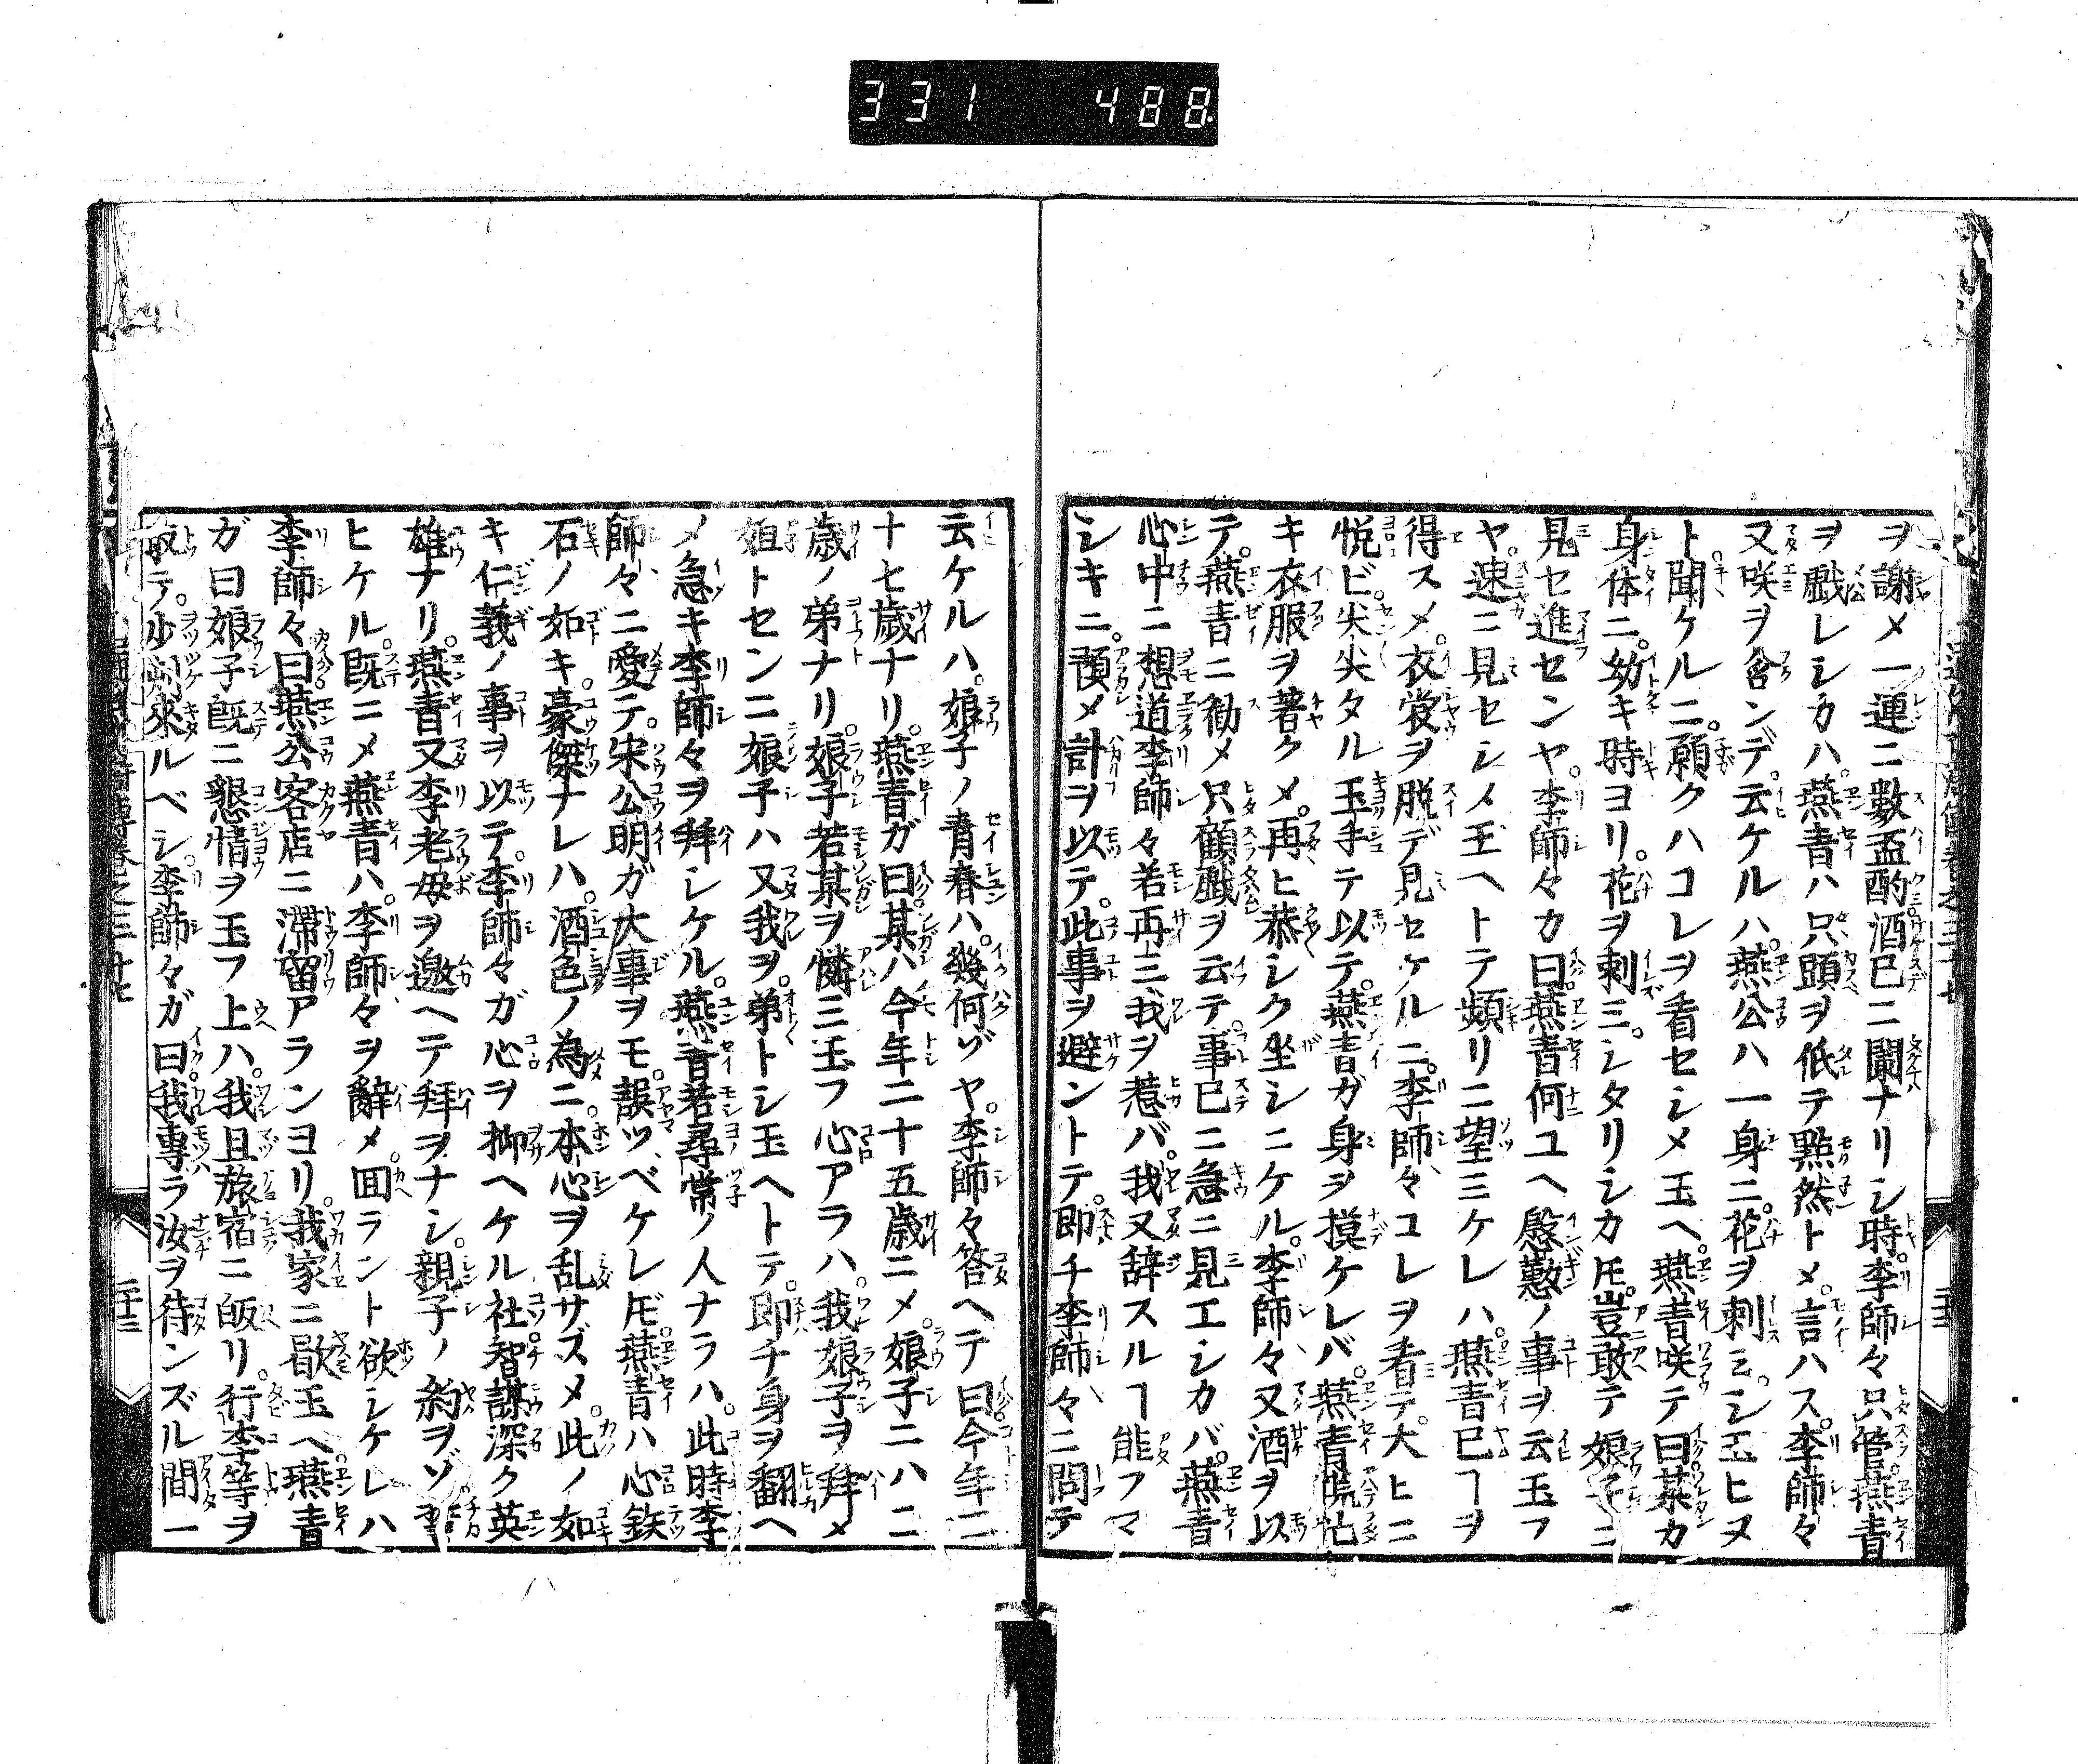 331 488
ヲ謝メ一連ニ數盃酌酒已ニ闌ナリシ時李師々只管燕青
ヲ戯レシカハ。燕青ハ只頭ヲ低テ點然トメ言ハス。李師々
又咲ヲ含ンデ。云ケルハ。燕公ハ一身ニ花ヲ刺ミシ玉ヒヌ
ト聞ケルニ。願クハコレヲ看セシメ玉ヘ。燕青咲テ曰某カ
身体ニ。幼キ時ヨリ。花ヲ刺ミ。シタリシカ𪜈。豈敢テ娘子ニ
見セ進センヤ。李師々カ曰燕青何ユヘ慇懃ノ事ヲ云玉フ
ヤ。速ニ見セシメ玉ヘトテ頻リニ望ミケレハ。燕青已ヿヲ
得スメ。衣裳ヲ脱デ見セケルニ。李師々コレヲ看テ大ヒニ
悦ビ尖尖タル玉手テ以テ。燕青ガ身ヲ摸ケレバ。燕青慌忙
キ衣服ヲ著ケメ。再ヒ恭シク坐シニケル。李師々又酒ヲ以
テ。燕青ニ勧メ只顧戯ヲ云テ。事已ニ急ニ見エシカバ。燕青
心中ニ想道李師々若再三我ヲ惹バ。我又辞スルヿ能フマ
シキニ。預メ計ヲ以テ。此事ヲ避ントテ。即チ李師々ニ問テ
云ケルハ。娘子ノ青春ハ。幾何ゾヤ。李師々答ヘテ曰今年二
十七歳ナリ。燕青ガ曰某ハ今年二十五歳ニメ。娘子ニハ二
歳ノ弟ナリ。娘子若某ヲ憐ミ玉フ心アラハ。我娘子ヲ拜メ
姐トセンニ娘子ハ又我ヲ。弟トシ玉ヘトテ。即チ身ヲ翻ヘ
メ急キ李師々ヲ拜シケル。燕青若尋常ノ人ナラハ。此時李
師々ニ愛テ。宋公明ガ大事ヲモ。誤ツベケレ𪜈。燕青ハ心鉄
石ノ如キ豪傑ナレハ。酒色ノ為ニ。本心ヲ乱サズメ。此ノ如
キ仁義ノ事ヲ以テ。李師々ガ心ヲ抑ヘケル社智謀深ク英
雄ナリ。燕青又李老母ヲ邀ヘテ拜ヲナシ。親子ノ約ヲゾ
ヒケル。既ニメ燕青ハ。李師々ヲ辭メ回ラント欲シケレハ
李師々曰燕公客店ニ滞留アランヨリ。我家ニ歇玉ヘ。燕青
ガ曰娘子既ニ懇情ヲ玉フ上ハ。我且旅宿ニ皈リ。行李等ヲ
取テ。少刻來ルベシ李師々ガ曰我專ラ汝ヲ待ンズル間一